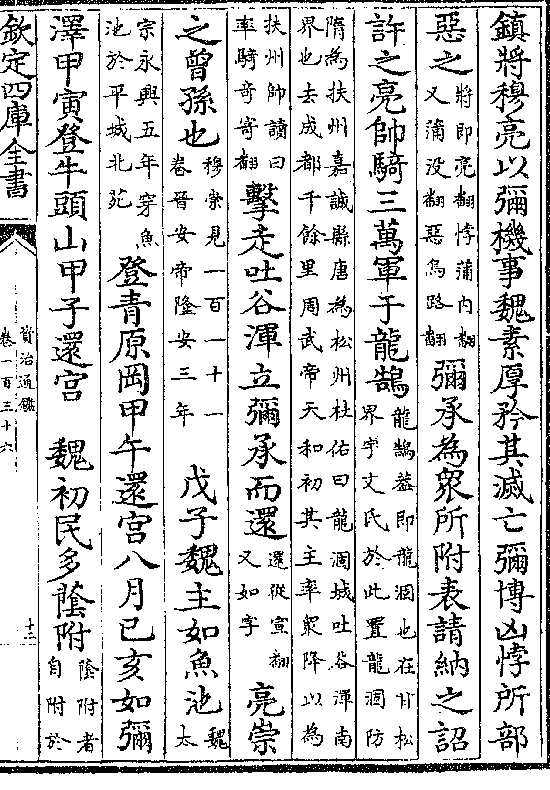 鎮將穆亮以彌機事魏素厚矜其滅亡彌博凶悖所部
惡之將即亮翻悖蒲内翻又蒲没翻惡烏路翻彌承為衆所附表請納之詔
許之亮帥騎三萬軍于龍鵠龍鵠葢即龍涸也在甘松界宇文氏於此置龍涸防
隋為扶州嘉誠縣唐為松州杜佑曰龍涸城吐谷渾南界也去成都千餘里周武帝天和初其主率衆降以為
扶州帥讀曰率騎奇寄翻擊走吐谷渾立彌承而還還從宣翻又如字亮崇
之曾孫也穆崇見一百一十一卷晉安帝隆安三年戊子魏主如魚池魏太
宗永興五年穿魚池於平城北苑登青原岡甲午還宫八月己亥如彌
澤甲寅登牛頭山甲子還宫魏初民多䕃附䕃附者自附於
欽定四庫全書
資治通鑑
卷一百三十六
十二